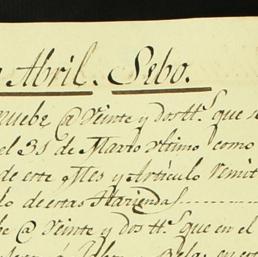 Abril. Sebo.
nuebe @ veinte y dos tt.s que s
el 31 de Marzo ultimo como
de este Mes y Articulo remit
do de estas Haciendas
be @ veinte y dos tt.s que en el